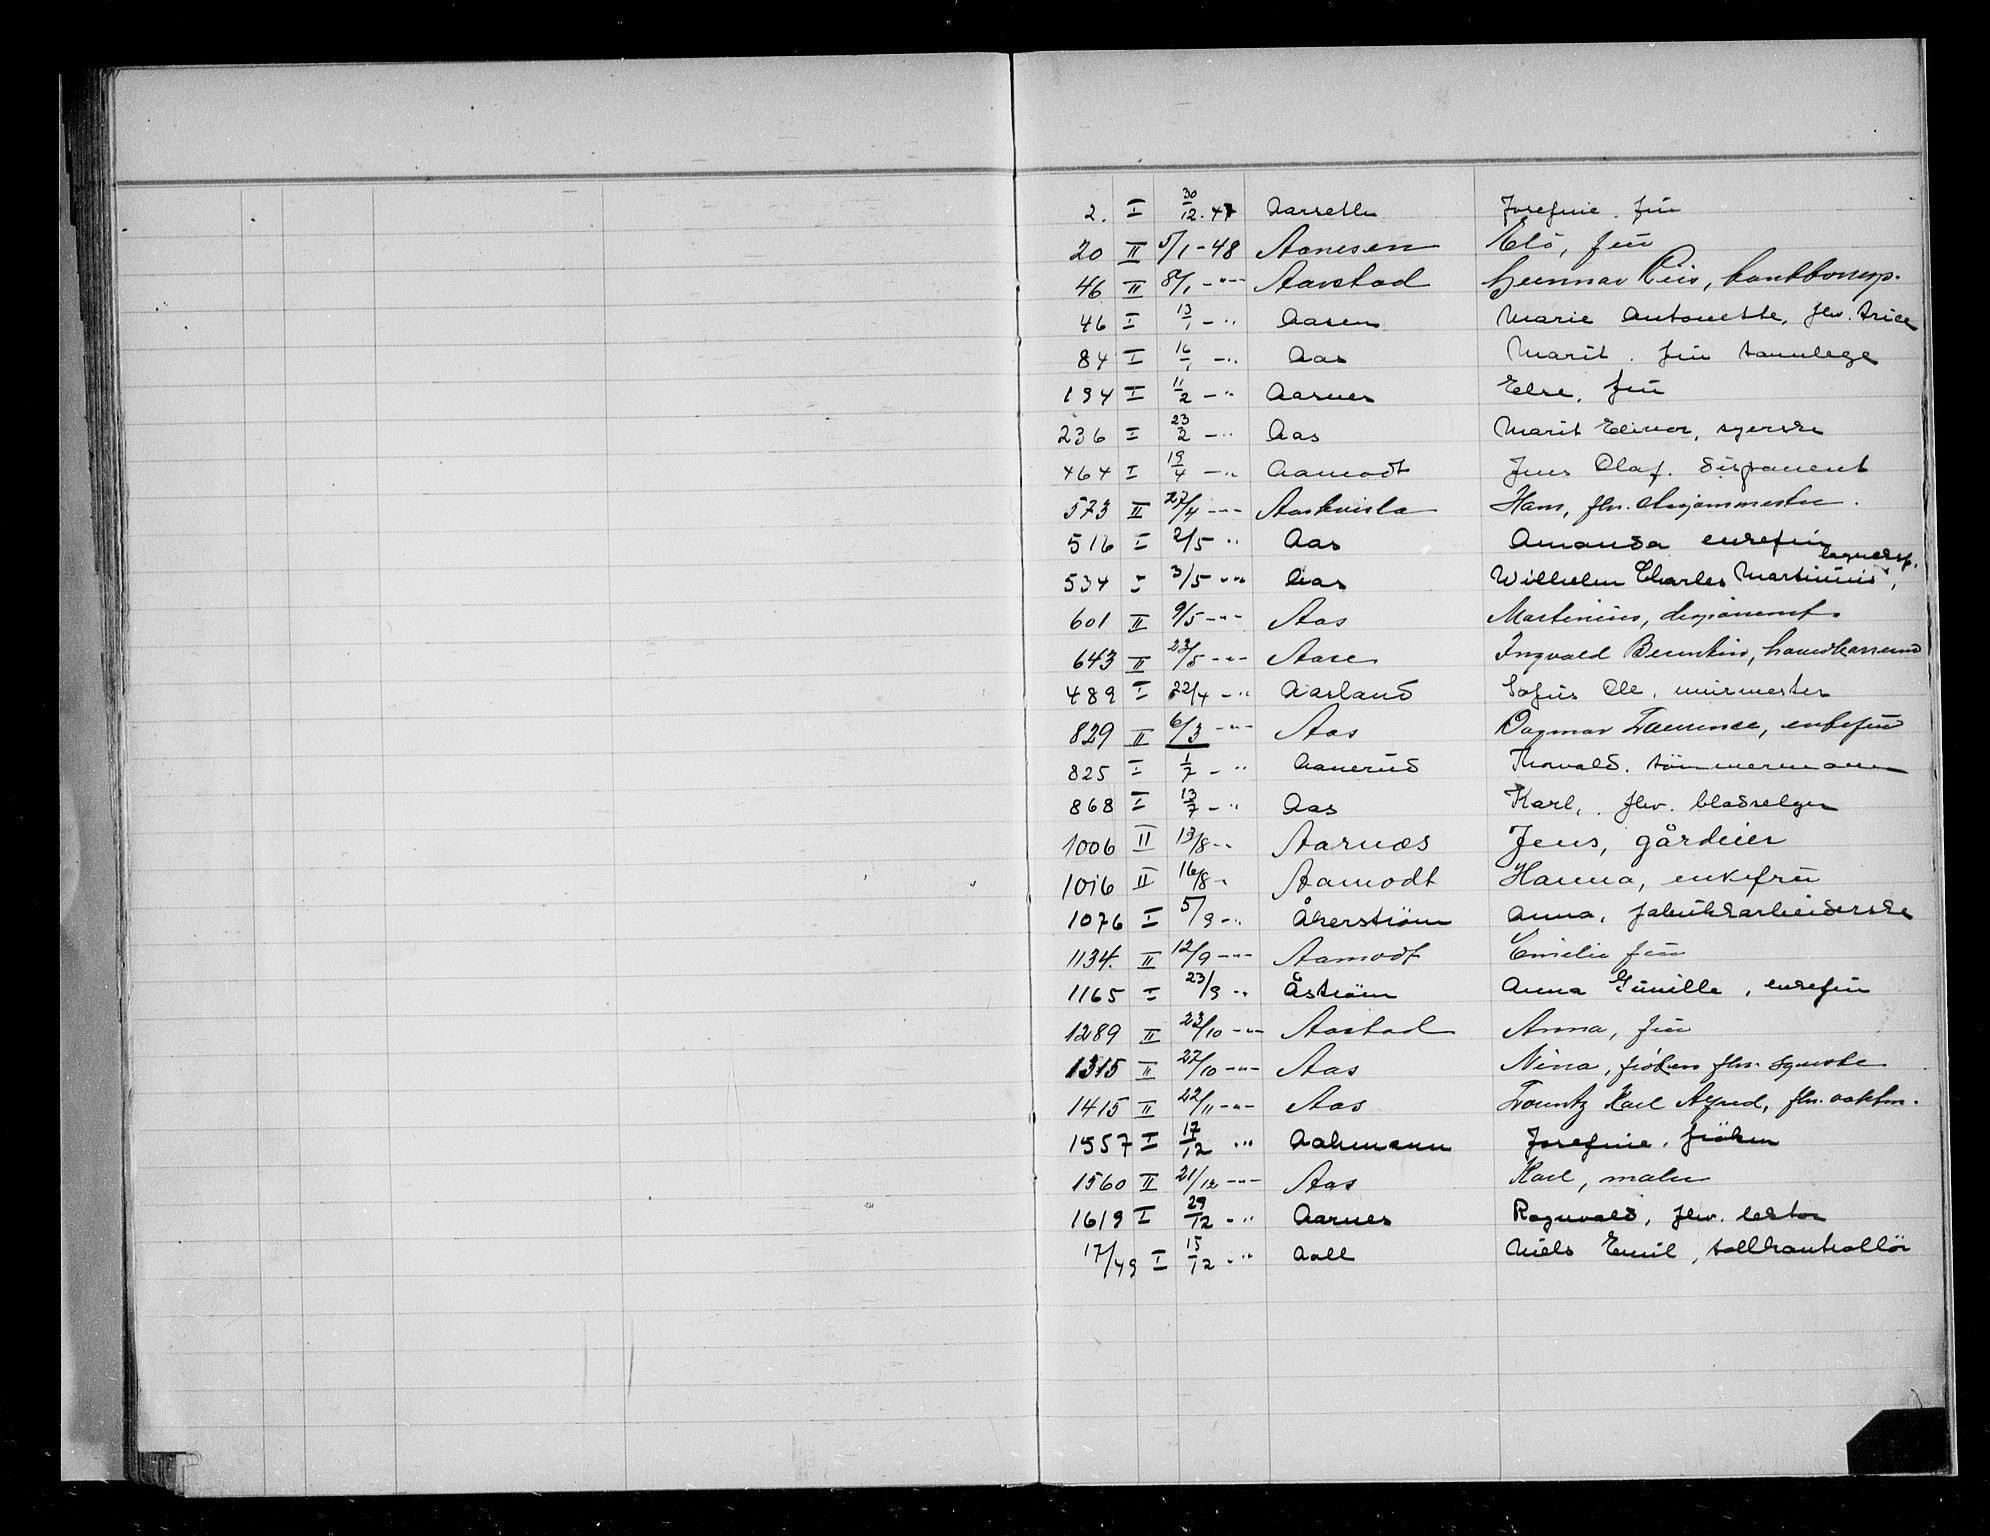 2. I 30/12-47 Aarseth Josefine. frü
20 II 5/1-48 Aanesen Elö, frü
46 II 8/1 -"- Aarstad Gunnar Riis, bankkorresp.
46 I 13/1 -" Aasen Marie Antonette, fhv.
84 I 16/1 -" Aas Marit. frü tannlege
194 I 11/2 -" Aarnes Else, frü
236 I 23/2 -" Aas Marit Elinor, syerske
464 I 19/4 -" Aamodt Jens Olaf. disponent
573 II 27/4 -"- Hans, fhv.
516 I 2/5 " Aas Amanda enkefrü
lagereksp.
534 I 3/5 -"- Aas Wilhelm Charles Martinius,
601 II 9/5 -"- Aas Martinius, disponent
643 II 23/5 -"- Aase Ingvald Berntin,
489 I 22/4 -" Aarland Sofus Ole, mürmester
829 II 6/3 -"- Aas Dagmar Laurence, enkefrü
825 I 1/7 -" Aanerüd Thorvald. tömmermann
868 I 13/7 -" Aas Karl, fhv. bladselger
1006 II 13/8 -" Aarnæs Jens, gårdeier
1016 II 16/8 -" Aamodt Hanna, enkefru
1076 I 5/9 -" Åkerström Anna, fabrikkarbeiderske
1134. II 12/9 -"- Aamodt Emilie frü
1165 I 23/9 -" Åström Anna Günille, enkefrü
1289 II 23/10 -"- Aastad Anna, frü
1315 II 27/10 -"- Aas Nina, frøken fhv. syerske
1415 II 22/11 -"- Aas Lorentz Karl Alfred, fhv. vaktm.
1557 I 17/12 -" Aakmann Josefine, fröken
1560 II 21/12 -"- Aas Karl, maler
1619 I 29/12 -" Aarnes Ragnvald, fhv. lektor
17/49 I 15/12 -" Aall Niels Emil, tollkontrollör